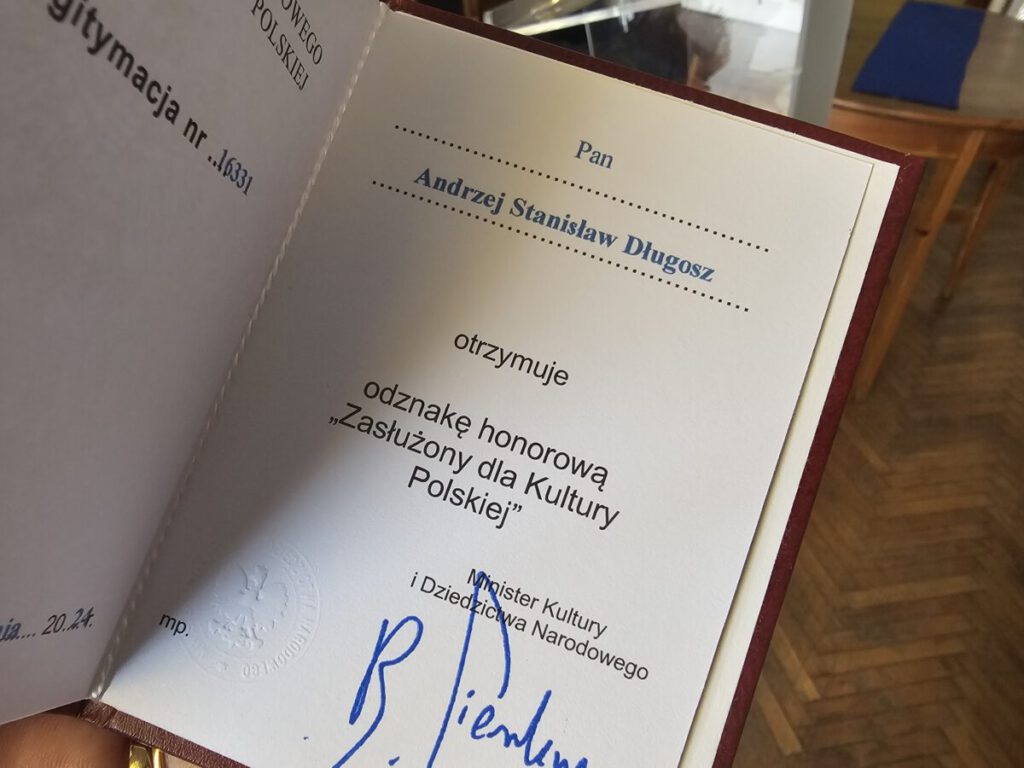 OWEGO
POLSKIEJ
gitymacja nr ..16331
nia.... 20.24.
Pan
Andrzej Stanisław Długosz
otrzymuje
odznakę honorową
„Zasłużony dla Kultury
Polskiej”
Minister Kultury
i Dziedzictwa Narodowego
mp.